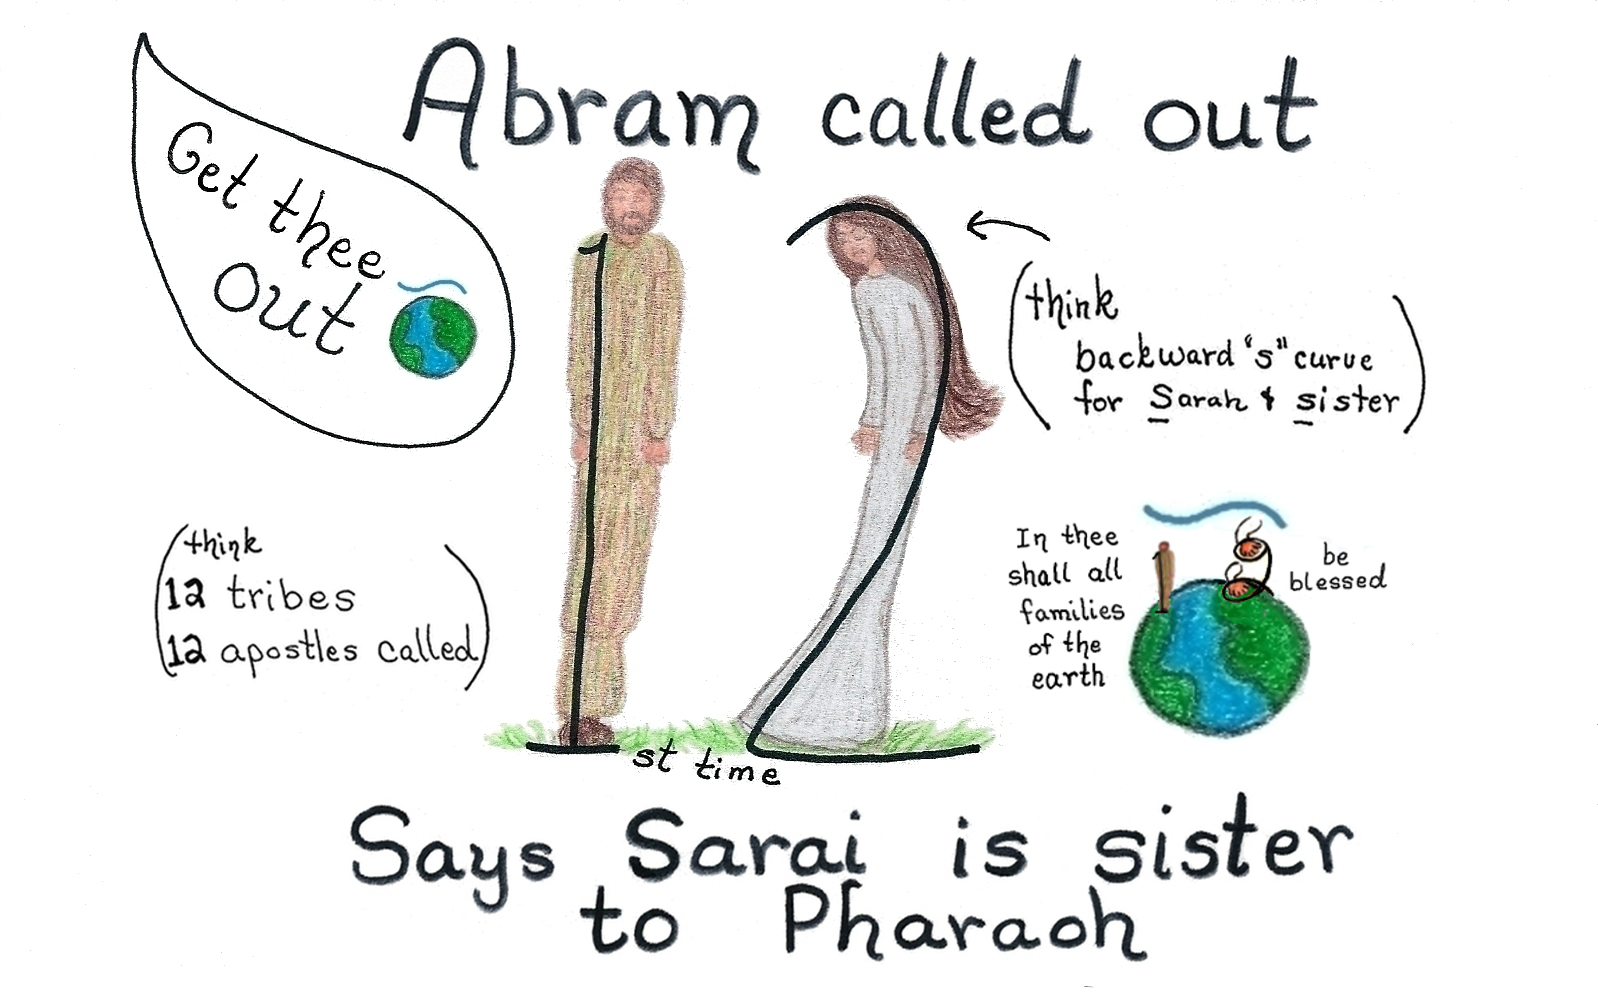 Abram called out
Get thee
out
(think
backward "s" curve
for Sarah & sister)
(think
12 tribes
12 apostles called)
12
1st time
In thee
shall all
families
of the
earth
be
blessed
Says Sarai is sister
to Pharaoh